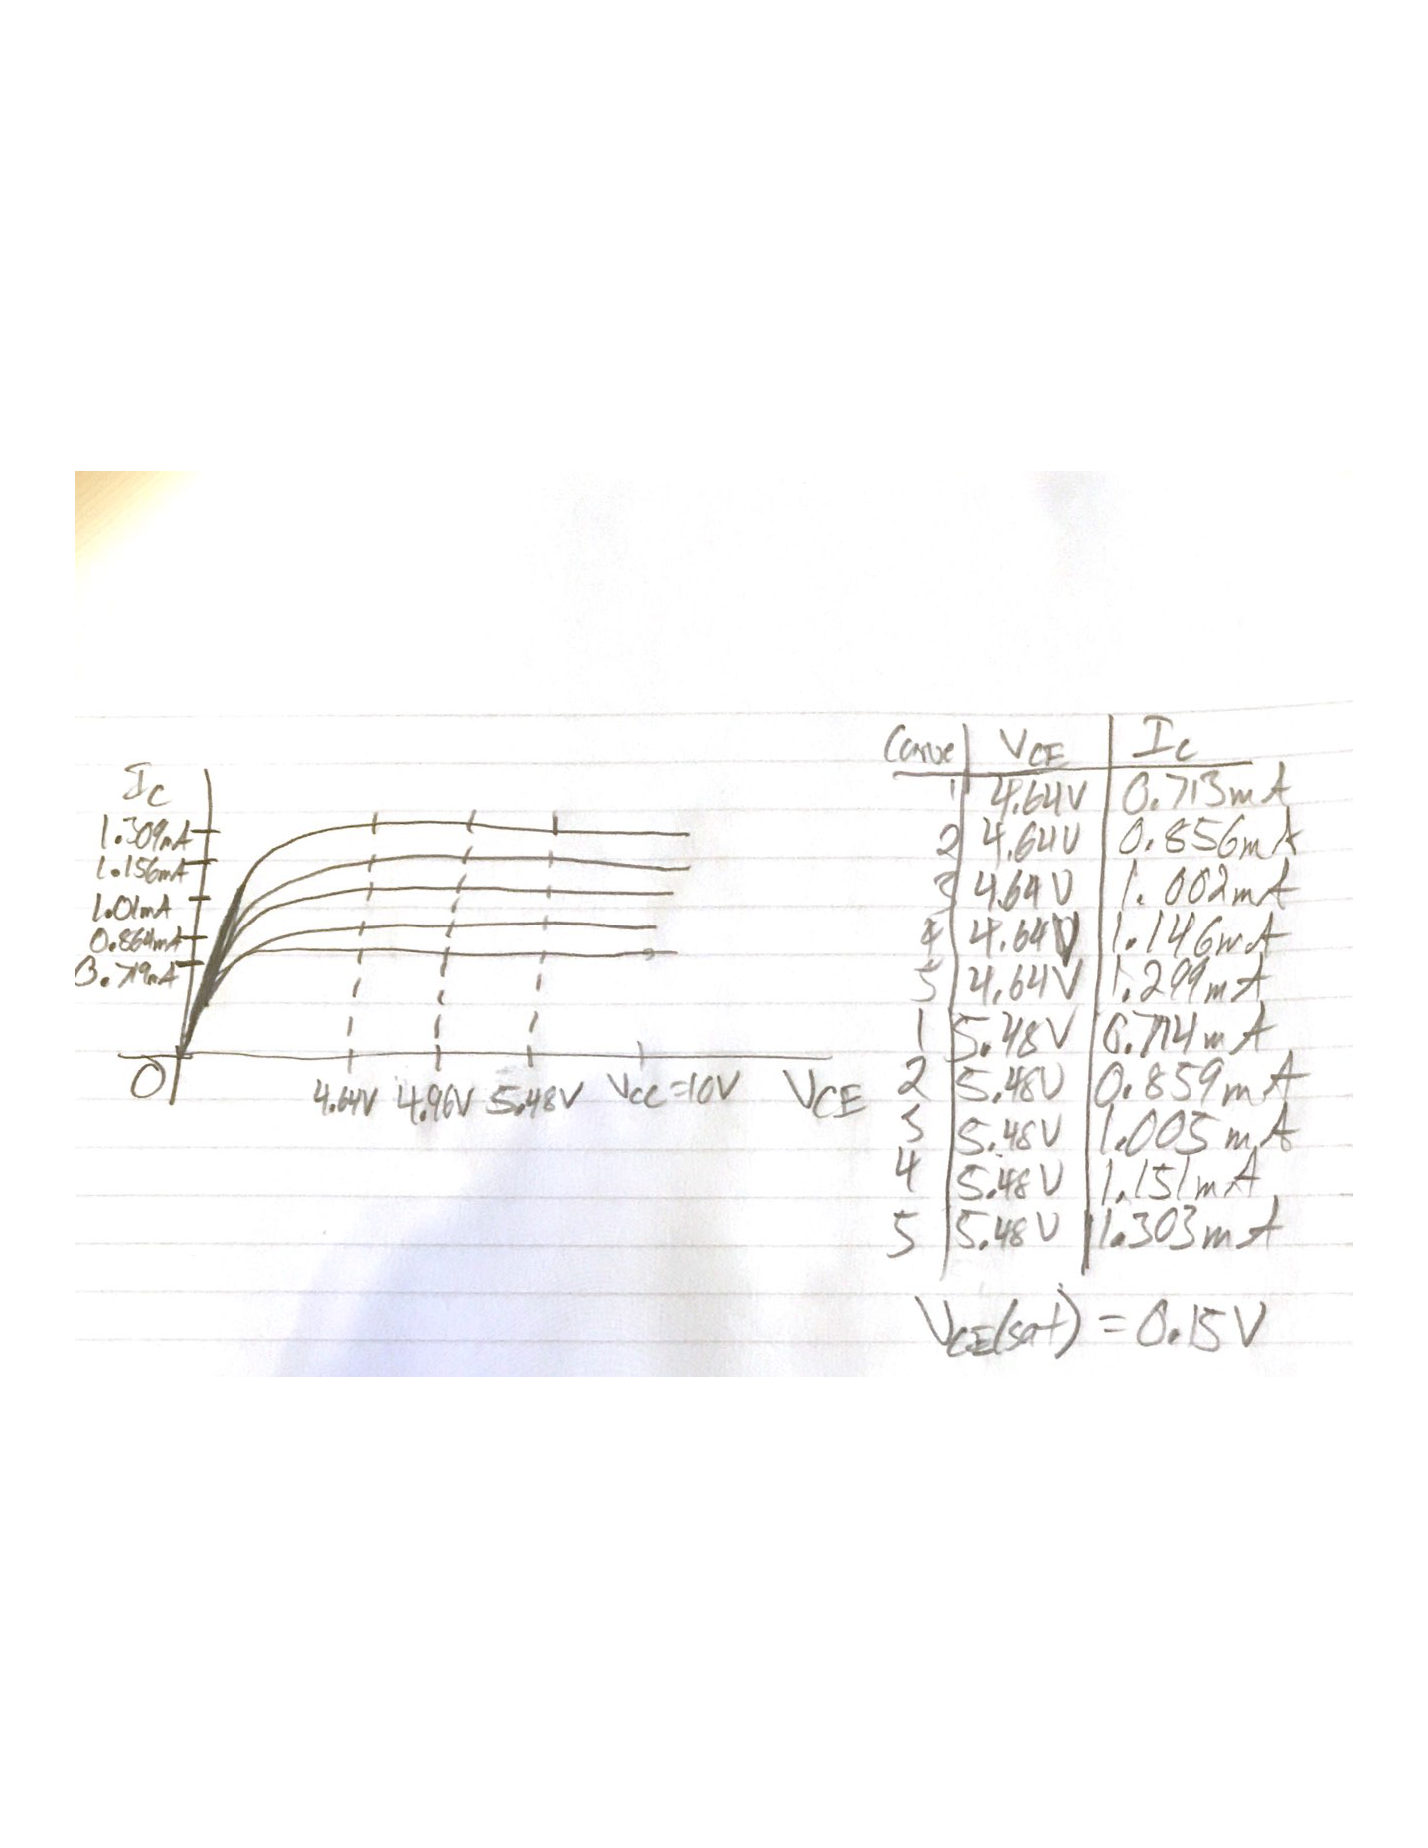 I_C
1.309mA
1.156mA
1.01mA
0.864mA
0.719mA
0
4.64V 4.96V 5.48V Vcc=10V V_CE
Curve V_CE I_C
1 4.64V 0.713mA
2 4.64V 0.856mA
3 4.64V 1.002mA
4 4.64V 1.146mA
5 4.64V 1.299mA
1 5.48V 0.714mA
2 5.48V 0.859mA
3 5.48V 1.005mA
4 5.48V 1.151mA
5 5.48V 1.303mA
V_CE(sat) = 0.15V